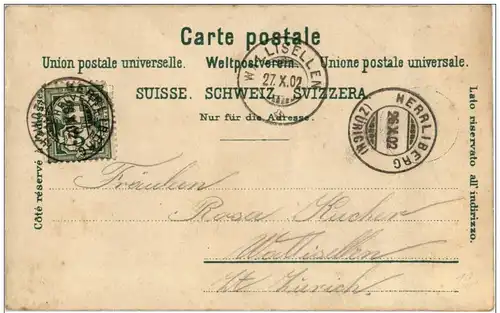 Carte postale
Union postale universelle. Weltpostverein. Unione postale universale.
SUISSE. SCHWEIZ. SVIZZERA.
Nur für die Adresse.
Côté réservé à l'adresse.
Lato riservato all' indirizzo.
WALLISELLEN
27.X.02
HERRLIBERG
26.X.02
(ZÜRICH)
HERRLIBERG
Fräulein
Rosa Kucher
Wallisellen
Kt. Zürich